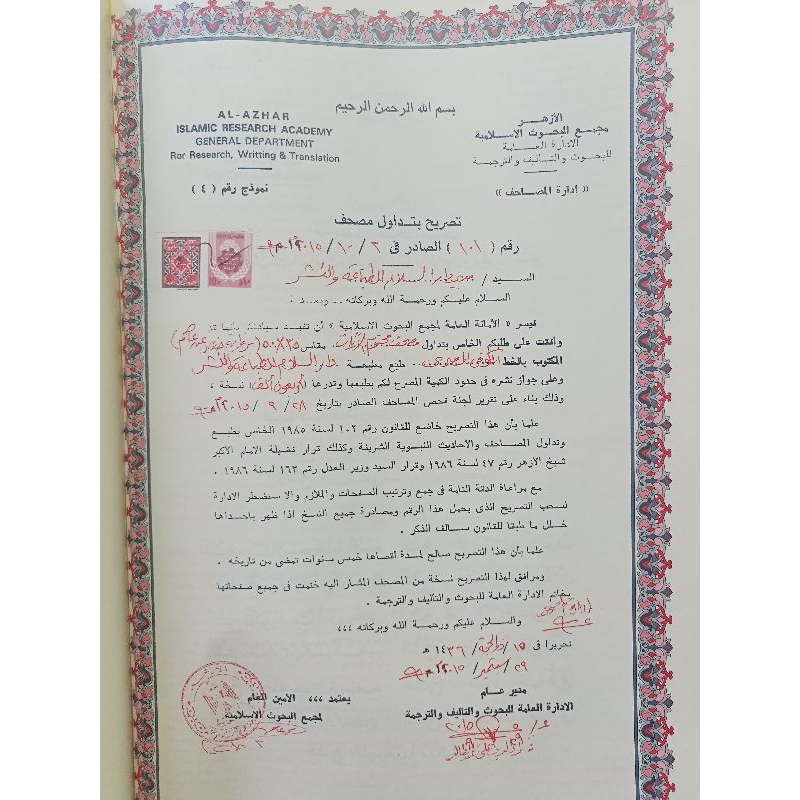 بسم الله الرحمن الرحيم
الأزهـــر
مجمع البحوث الاسلامية
الادارة العـامة
للبحوث والتأليف والترجمة
« ادارة المصاحف »
AL-AZHAR
ISLAMIC RESEARCH ACADEMY
GENERAL DEPARTMENT
Ror Research, Writting & Translation
نموذج رقم ( ٤ )
تصريح بتداول مصحف
رقم ( ١٠١ ) الصادر فى ٢ / ١٠ / ٢٠١٥ م
الســيد / دار السلام للطباعة والنشر
السلام عليكم ورحمة الله وبركاته .. وبعـد :
فيسر « الأمانة العامة لمجمع البحوث الاسلامية » أن تفيد سيادتكم بأنها قد
وافقت على طلبكم الخاص بتداول مصحف بمقاس ٣٥×٥٠
المكتوب بالخط الكوفى طبع مطبعة دار السلام للطباعة والنشر
وعلى جواز نشره فى حدود الكمية المصرح لكم بطبعها وقدرها ( أربعون ألف ) نسخة ،
وذلك بناء على تقرير لجنة فحص المصاحف الصادر بتاريخ ٢٨ / ٩ / ٢٠١٥ م
علما بأن هذا التصريح خاضع للقانون رقم ١٠٢ لسنة ١٩٨٥ الخاص بطبع
وتداول المصاحف والأحاديث النبوية الشريفة وكذلك قرار فضيلة الامام الأكبر
شيخ الأزهر رقم ٤٧ لسنة ١٩٨٦ وقرار السيد وزير العدل رقم ١٦٣ لسنة ١٩٨٦ .
مع مراعاة الدقة التامة فى جمع وترتيب الصفحات والملازم والا ستضطر الادارة
لسحب التصريح الذى يحمل هذا الرقم ومصادرة جميع النسخ اذا ظهر باحداها
خلل ما طبقا للقانون سالف الذكر .
علما بأن هذا التصريح صالح لمدة أقصاها خمس سنوات تمضى من تاريخه .
ومرافق لهذا التصريح نسخة من المصحف المشار اليه ختمت فى جميع صفحاتها
بخاتم الادارة العامة للبحوث والتأليف والترجمة .
والسلام عليكم ورحمة الله وبركاته ،،،
تحريرا فى ١٥ / ذو الحجة / ١٤٣٦ هـ
٢٩ / سبتمبر / ٢٠١٥ م
مدير عـام
الادارة العامة للبحوث والتأليف والترجمة
يعتمد ،،، الأمين العام
لمجمع البحوث الاسلامية